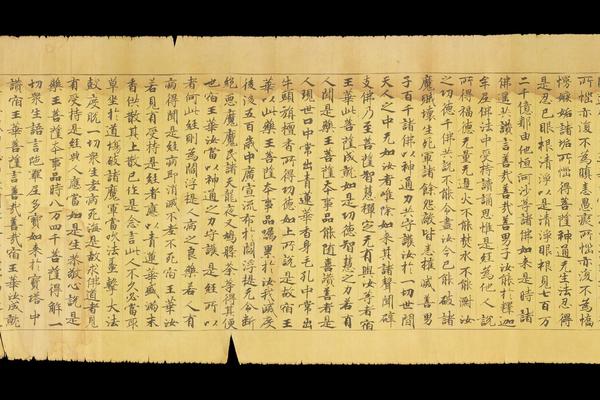 所惱亦復不為瞋恚愚癡所惱亦復不為憍
慢嫉妬諸垢所惱得菩薩神通无生法忍得
是忍已眼根清淨以是清淨眼根見七百万
二千億那由他恒河沙等諸佛如來是時諸
佛遙共讚言善哉善哉善男子汝能於釋迦
牟尼佛法中受持讀誦思惟是經為他人說
所得福德无量无邊火不能焚水不能漂汝
之功德千佛共說不能令盡汝今已能破諸
魔賊壞生死軍諸餘怨敵皆悉摧滅善男
子百千諸佛以神通力共守護汝於一切世間
天人之中无如汝者唯除如來其諸聲聞辟
支佛乃至菩薩智慧禪定无有與汝等者宿
王華此菩薩成就如是功德智慧之力若有
人聞是藥王菩薩本事品能隨喜讚善者是
人現世口中常出青蓮華香身毛孔中常出
牛頭栴檀香所得功德如上所說是故宿王
華以此藥王菩薩本事品囑累於汝我滅度
後後五百歲中廣宣流布於閻浮提无令斷
絕惡魔魔民諸天龍夜叉鳩槃荼等得其便
也宿王華汝當以神通之力守護是經所以
者何此經則為閻浮提人病之良藥若人有
病得聞是經病即消滅不老不死宿王華汝
若見有受持是經者應以青蓮華盛滿末
香供散其上散已作是念言此人不久必當取
草坐於道場破諸魔軍當吹法螺擊大法
鼓度脫一切衆生老病死海是故求佛道者見
有受持是經典人應當如是生恭敬心說是
藥王菩薩本事品時八万四千菩薩得解一
切衆生語言陀羅尼多寶如來於寶塔中
讚宿王華菩薩言善哉善哉宿王華汝成就